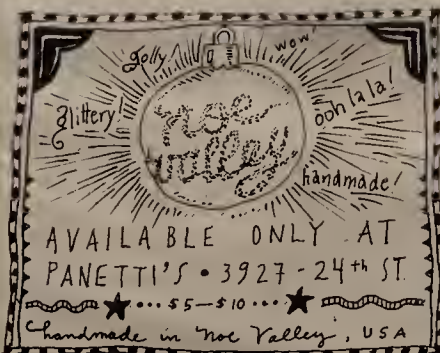 golly!
wow!
glittery!
ooh la la!
noe
valley
handmade!
AVAILABLE ONLY AT
PANETTI'S • 3927-24th ST.
$5—$10
handmade in "Noe Valley", USA